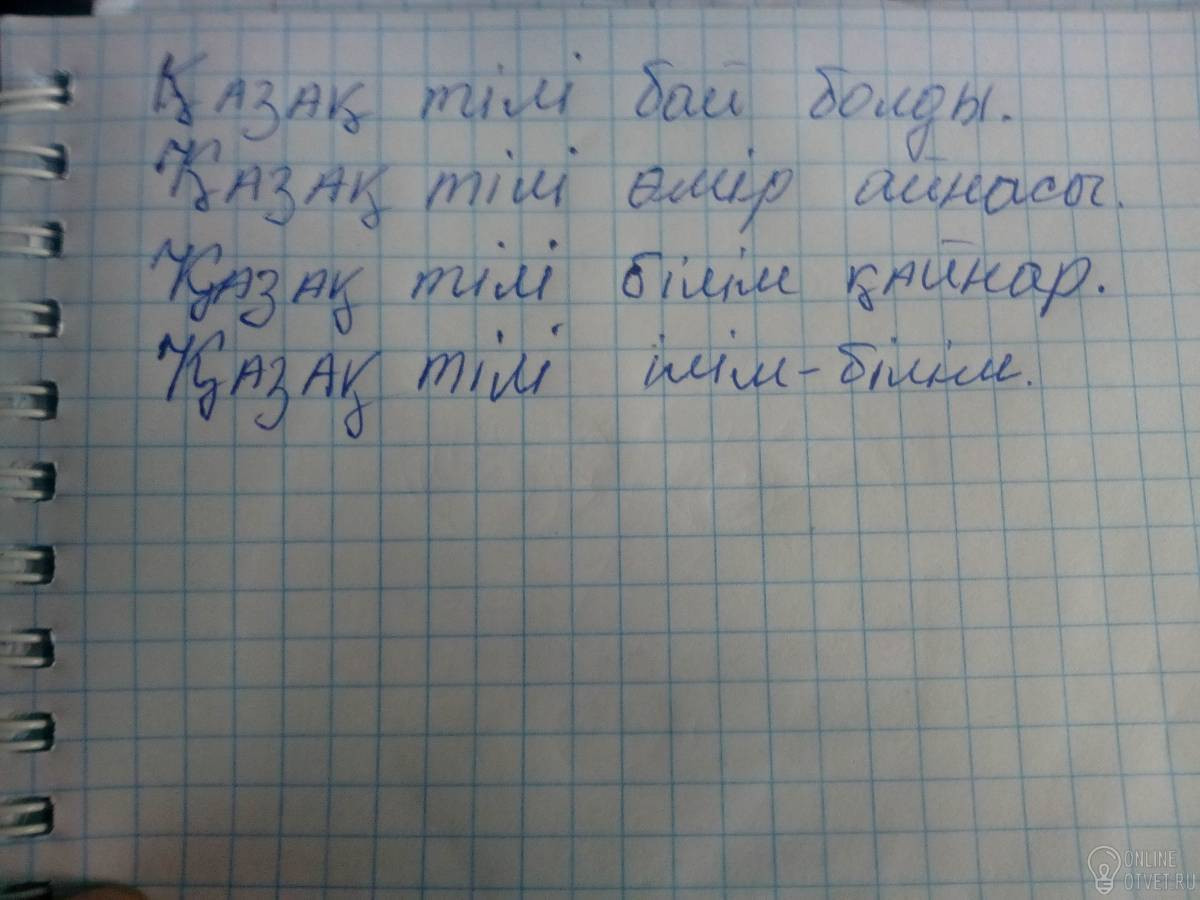 Қазақ тілі бай болды.
Қазақ тілі өмір айнасы.
Қазақ тілі білім қайнар.
Қазақ тілі ілім-білім.
ONLINE
OTVET.RU